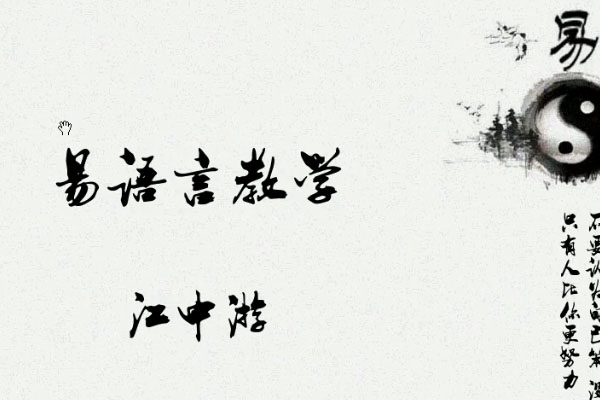 易
易語言教学
江中游
不要认为自己笨 没
只有人比你更努力